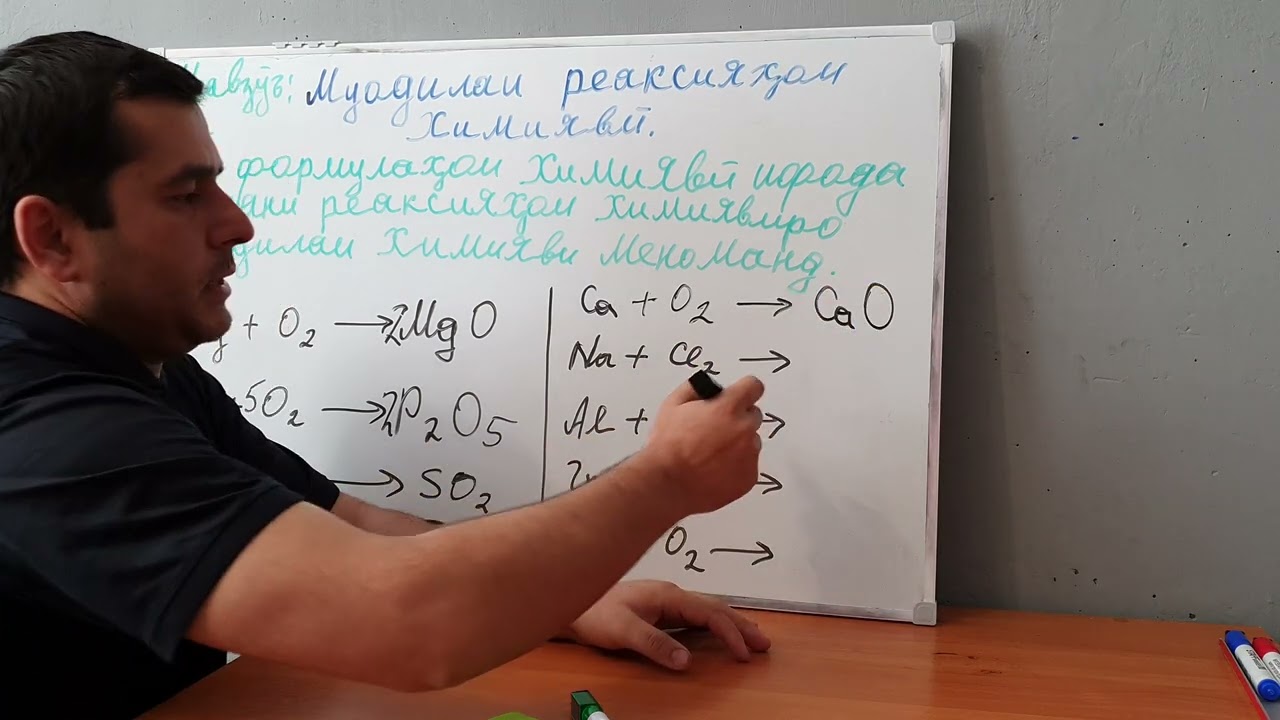 Мавзӯъ: Муодилаи реаксияҳои
Химиявӣ.
формулаҳои Химиявӣ ифода
реаксияҳои химиявиро
Химияви меноманд.
+ O₂ → 2MgO
5O₂ → 2P₂O₅
→ SO₂
Ca + O₂ → CaO
Na + Cl₂ →
Al + →
→
O₂ →